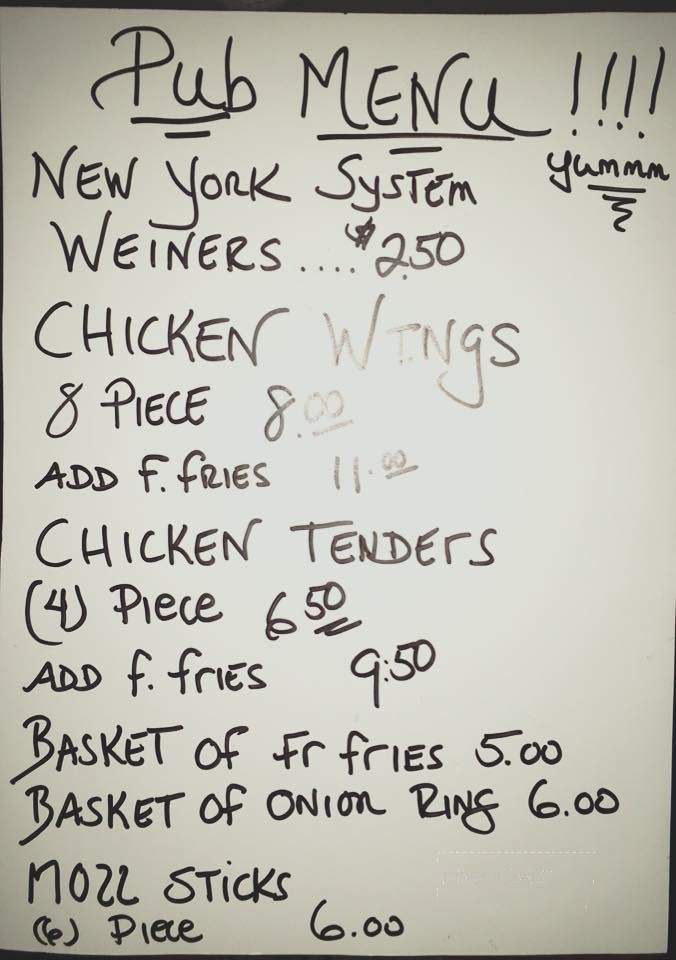 Pub MENU !!!!
yummm
NEW YORK SYSTEM
WEINERS .... $2.50
CHICKEN WINGS
8 PIECE 8.00
ADD F. FRIES 11.00
CHICKEN TENDERS
(4) PIECE 6 50
ADD F. FRIES 9:50
BASKET OF Fr FRIES 5.00
BASKET OF ONION RING 6.00
MOZZ STICKS
(6) PIECE 6.00